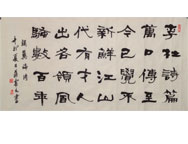 李杜詩篇
萬口傳至
今已覺不
新鮮江山
代有才人
出各領風
騷數百年